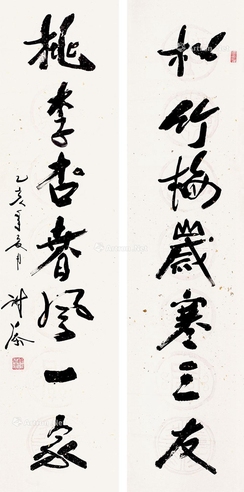 松竹梅岁寒三友
桃李杏春风一家
乙亥年夏月